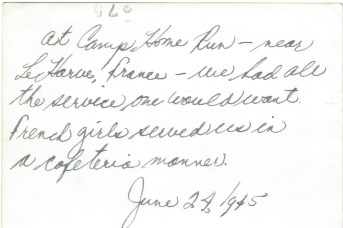 048
at Camp Home Run – near
Le Harve, France – we had all
the service, one would want.
French girls served us in
a cafeteria manner.
June 24, 1945